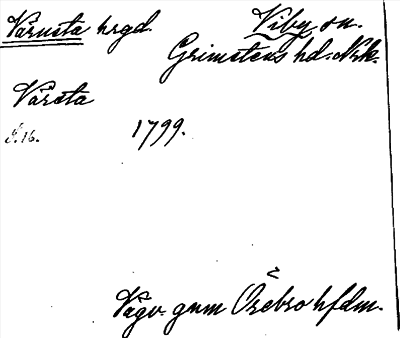 Vårnsta hrgd. Viby sn.
Grimstens hd. Nrk.
Vårsta
1799.
16.
Vägv. gnm Örebro hfdm.